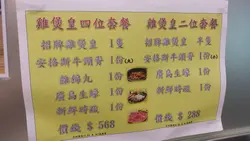 雞煲皇四位套餐
招牌雞煲皇 1隻
安格斯牛頸脊 1份(A)
1份
廣島生蠔 1份
新鮮時蔬 1份
價錢 $ 568
雞煲皇二位套餐
招牌雞煲皇 半隻
安格斯牛頸脊 1份(A)
廣島生蠔 1份
新鮮時蔬 1份
價錢 $ 288